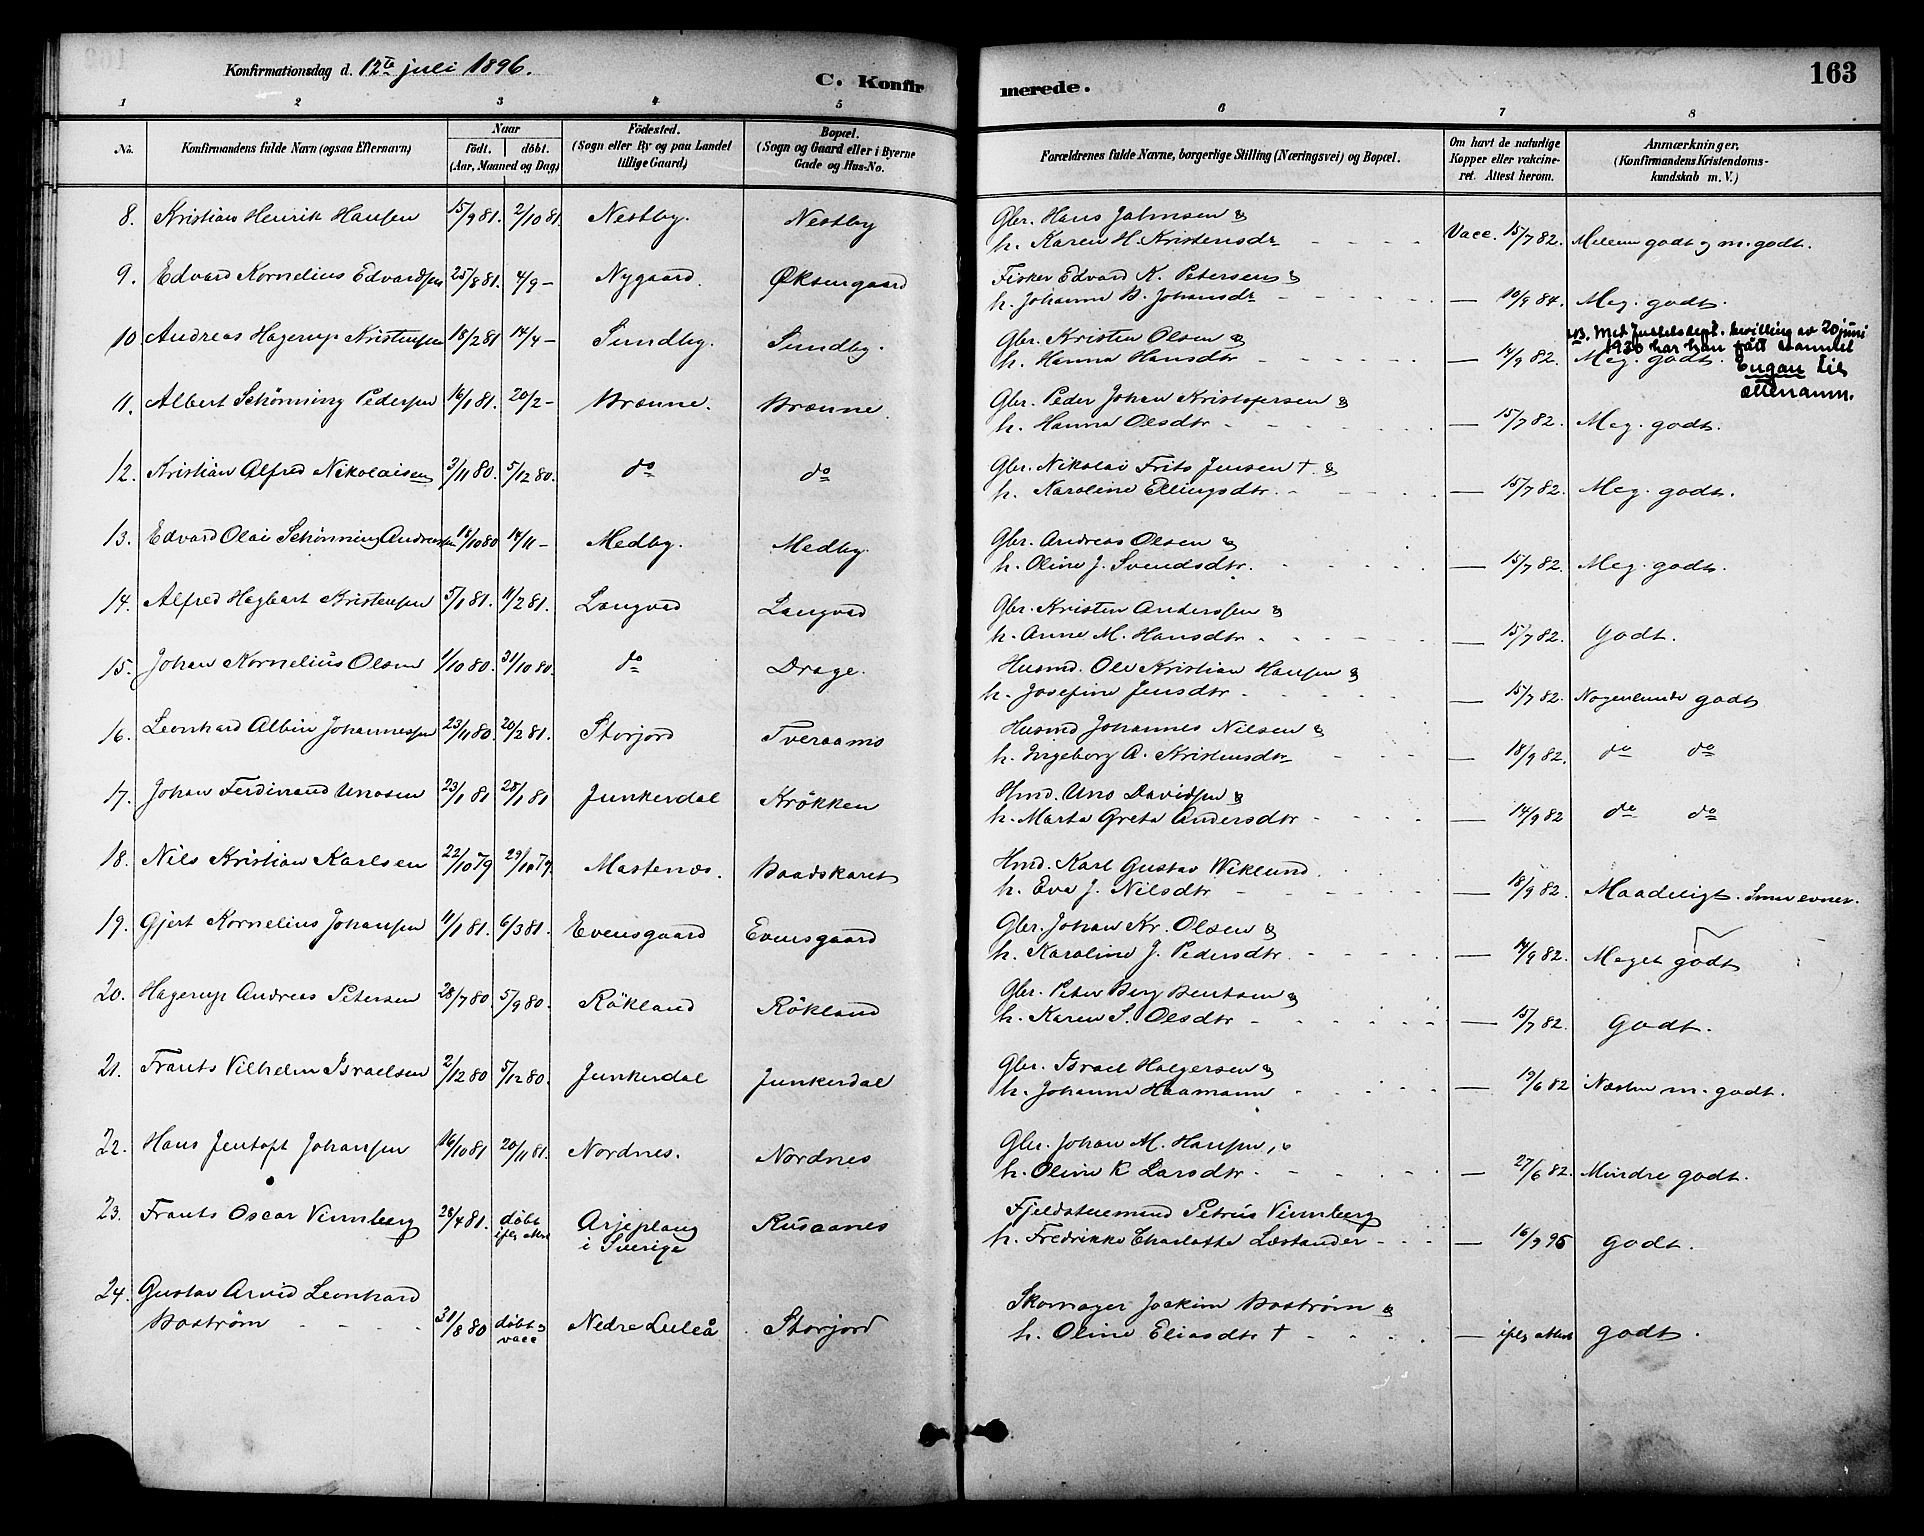 Konfirmationsdag d. 12te juli 1896.
C. Konfirmerede.
163
1 2 3 4 5 6 7 8
No. Konfirmandens fulde Navn (ogsaa Efternavn) Naar födt. döbt. (Aar, Maaned og Dag) Födested. (Sogn eller By og paa Landet tillige Gaard) Bopæl. (Sogn og Gaard eller i Byerne Gade og Hus-No. Forældrenes fulde Navne, borgerlige Stilling (Næringsvei) og Bopæl. Om havt de naturlige Kopper eller vakcineret. Attest herom. Anmærkninger. (Konfirmandens Kristendomskundskab m. V.)
8. Kristian Henrik Hansen 15/9 81. 2/10 81. Nestby. Nestby Gbr. Hans Jahnsen &
h. Karen H. Kristensdr Vacc. 15/7 82. Mellem godt og m. godt.
9. Edvard Kornelius Edvardsen 25/8 81. 4/9 - Nygaard. Øksengaard Fisker Edvard K. Petersen &
h. Johanna B. Johansdr — 10/9 84. Meg. godt.
10 Andreas Hagerup Kristensen 18/2 81 14/4 - Sundby. Sundby. Gbr. Kristen Olsen &
h. Hanna Hansdtr — 14/9 82. Meg. godt.
NB. Met Justitsdept. bevilling av 20 juni
1930 har han fått Navnet
Engan til
etternavn.
11. Albert Schønning Pedersen 16/1 81. 20/2 - Brænne. Brænne. Gbr. Peder Johan Kristofersen &
h. Hanna Olsdtr — 15/7 82. Meg. godt.
12. Kristian Alfred Nikolaisen 3/11 80. 5/12 80. do do Gbr. Nikolai Frits Jensen † &
h. Karoline Ellingsdtr. — 15/7 82. Meg. godt.
13. Edvard Olai Schønning Andreassen 18/10 80 14/11 - Medby. Medby. Gbr. Andreas Olsen &
h. Oline J. Svendsdtr. — 15/7 82. Meg. godt.
14. Alfred Hagbart Kristensen 5/1 81. 11/2 81. Langvad Langvad Gbr. Kristen Anderssen &
h. Anne M. Hansdtr — 15/7 82. Godt.
15. Johan Kornelius Olsen 1/10 80. 31/10 80. do Drage. Husmd. Ole Kristian Hansen &
h. Josefine Jensdtr — 15/7 82. Nogenlunde godt
16. Leonhard Albin Johannessen 23/11 80. 20/2 81. Storjord Tveraamo Husmd Johannes Nilsen &
h. Ingeborg A. Kristensdtr — 18/9 82. do do
17. Johan Ferdinand Unosen 23/1 81 28/1 81 Junkerdal Krökken Hmd. Uno Davidsen &
h. Marta Greta Andersdtr — 14/9 82 do do
18. Nils Kristian Karlsen 22/10 79 29/10 79. Mastenæs. Baadskaret Hmd. Karl Gustav Wiklund
h. Eva J. Nilsdtr — 18/9 82. Maadeligt. Smaa evner.
19. Gjert Kornelius Johansen 11/1 81. 6/3 81. Evensgaard Evensgaard Gbr. Johan Kr. Olsen &
h. Karoline J. Pedersdtr. — 14/9 82. Meget godt
20. Hagerup Andreas Petersen 28/7 80. 5/9 80. Rökland Rökland Gbr. Peter Berg Bentsen &
h. Karen S. Olsdtr — 15/7 82. Godt.
21. Frants Vilhelm Israelsen 2/12 80 5/12 80. Junkerdal Junkerdal Gbr. Israel Holgersen &
h. Johanne Haamann — 19/6 82 Næsten m. godt.
22. Hans Jentoft Johansen 16/10 81 20/11 81. Nordnes. Nordnes Gbr. Johan M. Hansen, &
h. Oline K Larsdtr. — 27/6 82. Mindre godt.
23. Frants Oscar Vennberg 28/4 81. döbt ifg attest Arjeplaug i Sverige Rusaanes Fjeldstuemand Petrus Vennberg
h. Fredrikke Charlotta Læstander — 16/9 95 godt.
24. Gustav Arvid Leonhard
Boström 31/8 80 döbt & vacc Nedre Luleå Storjord Skomager Joakim Boström &
h. Oline Eliasdtr † — ifg attest godt.